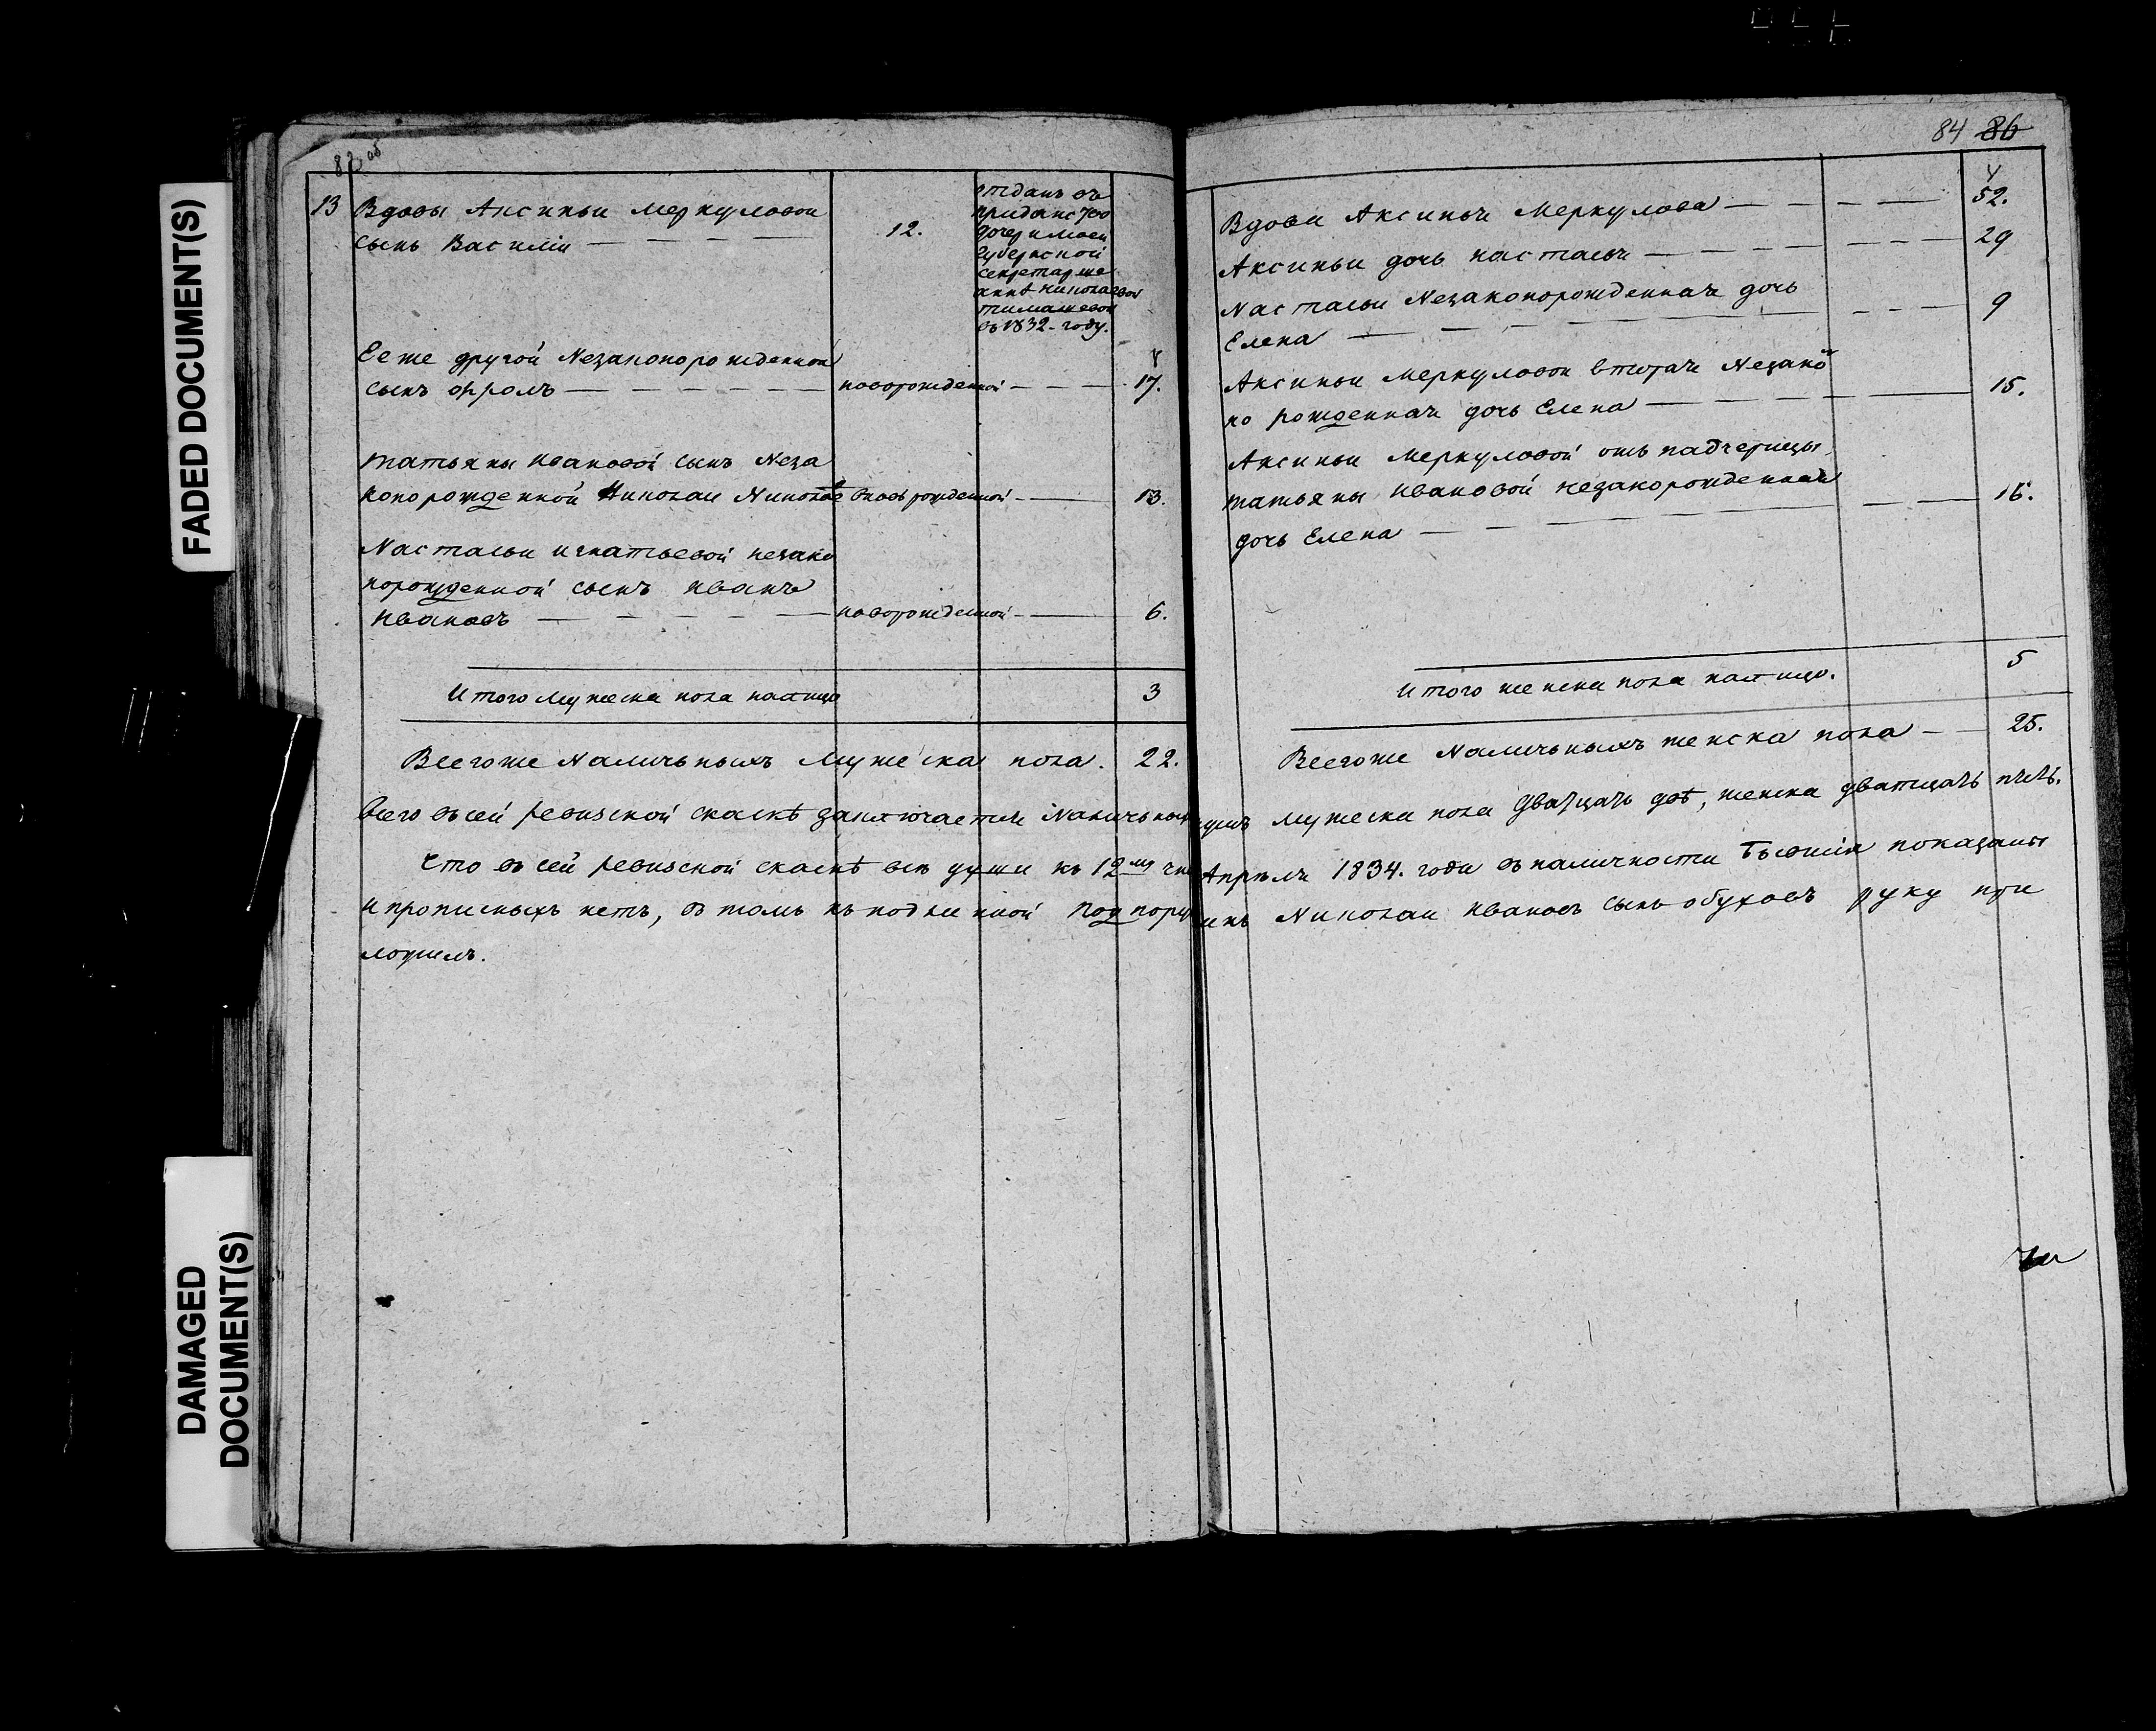 FADED DOCUMENT(S)
DAMAGED
DOCUMENT(S)
83 об
13 Вдовы Аксиньи Меркуловой
сынъ Василiй 12.
отданъ въ
приданство
дочери моей
Губернской
секретарше
аннѣ николаевой
тимашевой
въ 1832 - году.
Ее же другой Незаконорожденной
сынъ Фролъ новорожденной 17.
татьяны Ивановой сынъ Неза
конорожденной Николаи Николае въ новь рожденной 13.
Настасьи игнатьевой незако
норожденной сынъ иванъ
ивановъ новорожденной 6.
Итого мужеска пола налицо 3
Всего же Наличьныхъ мужеска пола. 22.
84 86
Вдова Аксинья Меркулова 52.
Аксиньи дочь настасья 29
Настасьи Незаконорожденная дочь
Елена 9
Аксиньи Меркуловой втарая Незако
но рожденная дочь Елена 15.
Аксиньи Меркуловой отъ падчерицы
татьяны Ивановой незакорожденная
дочь Елена 16.
Итого женска пола налицо. 5
Всего же Наличьныхъ женска пола 25.
всего въ сей ревизской скаскѣ заключается Наличьных душъ мужеска пола Дватцать двѣ, женска дватцать пять.
Что въ сей ревизской скаскѣ всѣ души къ 12му чис Апрѣля 1834. года въ наличности бывшiя показаны
и прописныхъ нетъ, въ томъ къ подлинной Подпоруч икъ Николаи Ивановъ сынъ обуховъ руку при
ложилъ.